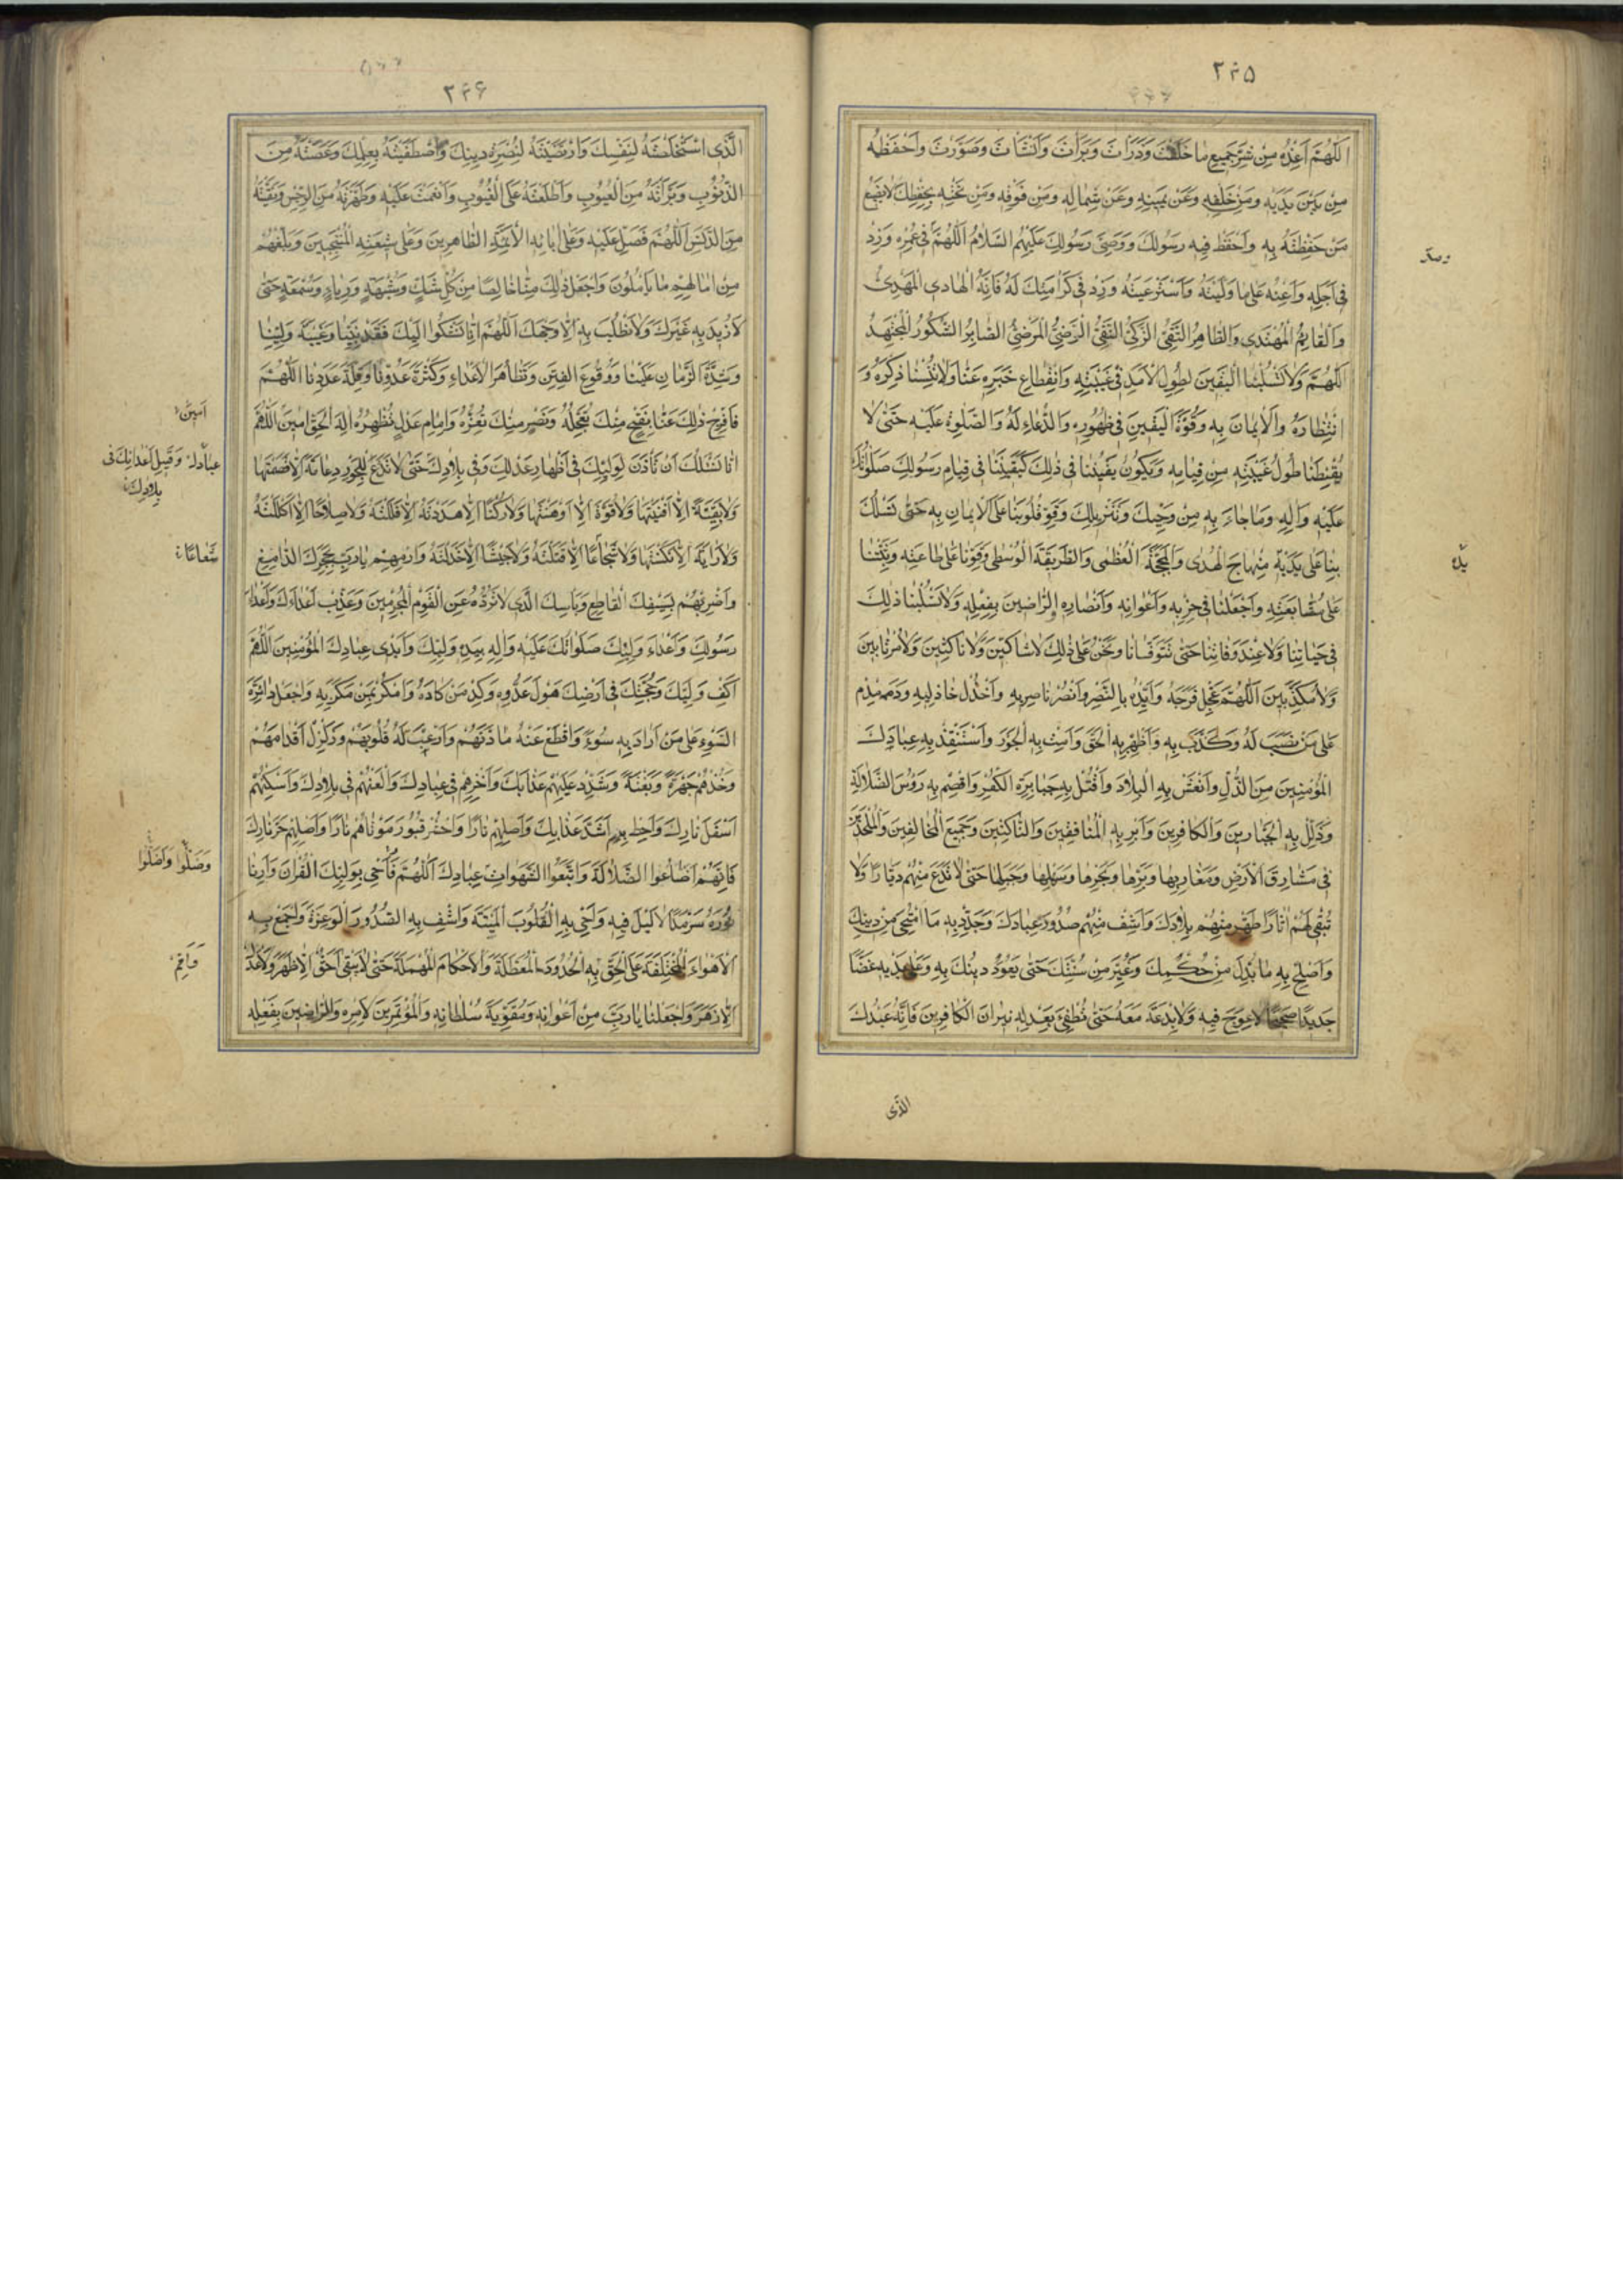 ٢٤٥
اَللّٰهُمَّ اَعِذْهُ مِنْ شَرِّ جَمِيعِ مَا خَلَقْتَ وَذَرَاْتَ وَبَرَاْتَ وَاَنْشَاْتَ وَصَوَّرْتَ وَاحْفَظْهُ
مِنْ بَيْنِ يَدَيْهِ وَمِنْ خَلْفِهِ وَعَنْ يَمِينِهِ وَعَنْ شِمَالِهِ وَمِنْ فَوْقِهِ وَمِنْ تَحْتِهِ بِحِفْظِكَ لَايَضِيعُ
مَنْ حَفِظْتَهُ بِهِ وَاحْفَظْ فِيهِ رَسُولَكَ وَوَصِيَّ رَسُولِكَ عَلَيْهِمُ السَّلَامُ اَللّٰهُمَّ فِي عُمْرِهِ وَزِدْ
فِي اَجَلِهِ وَاَعِنْهُ عَلٰى مَا وَلَّيْتَهُ وَاسْتَرْعَيْتَهُ وَزِدْ فِي كَرَامَتِكَ لَهُ فَاِنَّهُ الْهَادِي الْمَهْدِيُّ
وَالْقَايِمُ الْمُهْتَدِي وَالطَّاهِرُ التَّقِيُّ الزَّكِيُّ النَّقِيُّ الرَّضِيُّ الْمَرْضِيُّ الصَّابِرُ الشَّكُورُ الْمُجْتَهِدُ
اَللّٰهُمَّ وَلَاتَسْلُبْنَا الْيَقِينَ لِطُولِ الْاَمَدِ فِي غَيْبَتِهِ وَانْقِطَاعِ خَبَرِهِ عَنَّا وَلَاتُنْسِنَا ذِكْرَهُ وَ
انْتِظَارَهُ وَالْاِيمَانَ بِهِ وَقُوَّةَ الْيَقِينِ فِي ظُهُورِهِ وَالدُّعَاءَ لَهُ وَالصَّلٰوةَ عَلَيْهِ حَتّٰى لَا
يُقَنِّطَنَا طُولُ غَيْبَتِهِ مِنْ قِيَامِهِ وَيَكُونَ يَقِينُنَا فِي ذٰلِكَ كَيَقِينِنَا فِي قِيَامِ رَسُولِكَ صَلَوٰاتُكَ
عَلَيْهِ وَاٰلِهِ وَمَا جَاءَ بِهِ مِنْ وَحْيِكَ وَتَنْزِيلِكَ وَقَوِّ قُلُوبَنَا عَلَى الْاِيمَانِ بِهِ حَتّٰى تَسْلُكَ
بِنَا عَلٰى يَدَيْهِ مِنْهَاجَ الْهُدٰى وَالْمَحَجَّةَ الْعُظْمٰى وَالطَّرِيقَةَ الْوُسْطٰى وَقَوِّنَا عَلٰى طَاعَتِهِ وَثَبِّتْنَا
عَلٰى مُتَابَعَتِهِ وَاجْعَلْنَا فِي حِزْبِهِ وَاَعْوَانِهِ وَاَنْصَارِهِ وَالرَّاضِينَ بِفِعْلِهِ وَلَاتَسْلُبْنَا ذٰلِكَ
فِي حَيَاتِنَا وَلَا عِنْدَ وَفَاتِنَا حَتّٰى تَتَوَفَّانَا وَنَحْنُ عَلٰى ذٰلِكَ لَاشَاكِّينَ وَلَا نَاكِثِينَ وَلَامُرْتَابِينَ
وَلَامُكَذِّبِينَ اَللّٰهُمَّ عَجِّلْ فَرَجَهُ وَاَيِّدْهُ بِالنَّصْرِ وَانْصُرْ نَاصِرِيهِ وَاخْذُلْ خَاذِلِيهِ وَدَمْدِمْ
عَلٰى مَنْ نَصَبَ لَهُ وَكَذَّبَ بِهِ وَاَظْهِرْ بِهِ الْحَقَّ وَاَمِتْ بِهِ الْجَوْرَ وَاسْتَنْقِذْ بِهِ عِبَادَكَ
الْمُؤْمِنِينَ مِنَ الذُّلِّ وَانْعَشْ بِهِ الْبِلَادَ وَاقْتُلْ بِهِ جَبَابِرَةَ الْكُفْرِ وَاقْصِمْ بِهِ رُؤُسَ الضَّلَالَةِ
وَذَلِّلْ بِهِ الْجَبَّارِينَ وَالْكَافِرِينَ وَاَبِرْ بِهِ الْمُنَافِقِينَ وَالنَّاكِثِينَ وَجَمِيعَ الْمُخَالِفِينَ وَالْمُلْحِدِينَ
فِي مَشَارِقِ الْاَرْضِ وَمَغَارِبِهَا وَبَرِّهَا وَبَحْرِهَا وَسَهْلِهَا وَجَبَلِهَا حَتّٰى لَاتَدَعَ مِنْهُمْ دَيَّارًا وَلَا
تُبْقِيَ لَهُمْ اٰثَارًا طَهِّرْ مِنْهُمْ بِلَادَكَ وَاشْفِ مِنْهُمْ صُدُورَ عِبَادِكَ وَجَدِّدْ بِهِ مَا امْتَحٰى مِنْ دِينِكَ
وَاَصْلِحْ بِهِ مَا بُدِّلَ مِنْ حُكْمِكَ وَغُيِّرَ مِنْ سُنَّتِكَ حَتّٰى يَعُودَ دِينُكَ بِهِ وَعَلٰى يَدَيْهِ غَضًّا
جَدِيدًا صَحِيحًا لَاعِوَجَ فِيهِ وَلَابِدْعَةَ مَعَهُ حَتّٰى تُطْفِئَ بِعَدْلِهِ نِيرَانَ الْكَافِرِينَ فَاِنَّهُ عَبْدُكَ
الَّذِي
٢٤٦
الَّذِي اسْتَخْلَصْتَهُ لِنَفْسِكَ وَارْتَضَيْتَهُ لِنُصْرَةِ دِينِكَ وَاصْطَفَيْتَهُ بِعِلْمِكَ وَعَصَمْتَهُ مِنَ
الذُّنُوبِ وَبَرَّاْتَهُ مِنَ الْعُيُوبِ وَاَطْلَعْتَهُ عَلَى الْغُيُوبِ وَاَنْعَمْتَ عَلَيْهِ وَطَهَّرْتَهُ مِنَ الرِّجْسِ وَنَقَّيْتَهُ
مِنَ الدَّنَسِ اَللّٰهُمَّ فَصَلِّ عَلَيْهِ وَعَلٰى اٰبَائِهِ الْاَئِمَّةِ الطَّاهِرِينَ وَعَلٰى شِيعَتِهِ الْمُنْتَجَبِينَ وَبَلِّغْهُمْ
مِنْ اٰمَالِهِمْ مَا يَاْمُلُونَ وَاجْعَلْ ذٰلِكَ مِنَّا خَالِصًا مِنْ كُلِّ شَكٍّ وَشُبْهَةٍ وَرِيَاءٍ وَسُمْعَةٍ حَتّٰى
لَانُرِيدَ بِهِ غَيْرَكَ وَلَانَطْلُبَ بِهِ اِلَّا وَجْهَكَ اَللّٰهُمَّ اِنَّا نَشْكُوا اِلَيْكَ فَقْدَ نَبِيِّنَا وَغَيْبَةَ وَلِيِّنَا
وَشِدَّةَ الزَّمَانِ عَلَيْنَا وَوُقُوعَ الْفِتَنِ وَتَظَاهُرَ الْاَعْدَاءِ وَكَثْرَةَ عَدُوِّنَا وَقِلَّةَ عَدَدِنَا اَللّٰهُمَّ
فَافْرِجْ ذٰلِكَ عَنَّا بِفَتْحٍ مِنْكَ تُعَجِّلُهُ وَنَصْرٍ مِنْكَ تُعِزُّهُ وَاِمَامِ عَدْلٍ تُظْهِرُهُ اِلٰهَ الْحَقِّ اٰمِينَ اَللّٰهُمَّ
اِنَّا نَسْئَلُكَ اَنْ تَاْذَنَ لِوَلِيِّكَ فِي اِظْهَارِ عَدْلِكَ وَفِي بِلَادِكَ حَتّٰى لَاتَدَعَ لِلْجَوْرِ دِعَامَةً اِلَّا قَصَمْتَهَا
وَلَابَقِيَّةً اِلَّا اَفْنَيْتَهَا وَلَاقُوَّةً اِلَّا اَوْهَنْتَهَا وَلَارُكْنًا اِلَّا هَدَدْتَهُ اِلَّا فَلَلْتَهُ وَلَاسِلَاحًا اِلَّا اَكْلَلْتَهُ
وَلَارَايَةً اِلَّا نَكَّسْتَهَا وَلَاشُجَاعًا اِلَّا قَتَلْتَهُ وَلَاجَيْشًا اِلَّا خَذَلْتَهُ وَارْمِهِمْ يَارَبِّ بِحَجَرِكَ الدَّامِغِ
وَاضْرِبْهُمْ بِسَيْفِكَ الْقَاطِعِ وَبَاْسِكَ الَّذِي لَاتَرُدُّهُ عَنِ الْقَوْمِ الْمُجْرِمِينَ وَعَذِّبْ اَعْدَاءَكَ وَاَعْدَاءَ
رَسُولِكَ وَاَعْدَاءَ وَلِيِّكَ صَلَوَاتُكَ عَلَيْهِ وَاٰلِهِ بِيَدِ وَلِيِّكَ وَاَيْدِي عِبَادِكَ الْمُؤْمِنِينَ اَللّٰهُمَّ
اكْفِ وَلِيَّكَ وَحُجَّتَكَ فِي اَرْضِكَ هَوْلَ عَدُوِّهِ وَكِدْ مَنْ كَادَهُ وَامْكُرْ بِمَنْ مَكَرَ بِهِ وَاجْعَلْ دَائِرَةَ
السَّوْءِ عَلٰى مَنْ اَرَادَ بِهِ سُوءً وَاقْطَعْ عَنْهُ مَادَّتَهُمْ وَارْعَبْ لَهُ قُلُوبَهُمْ وَزَلْزِلْ اَقْدَامَهُمْ
وَخُذْهُمْ جَهْرَةً وَبَغْتَةً وَشَدِّدْ عَلَيْهِمْ عَذَابَكَ وَاَخْزِهِمْ فِي عِبَادِكَ وَالْعَنْهُمْ فِي بِلَادِكَ وَاَسْكِنْهُمْ
اَسْفَلَ نَارِكَ وَاَحِطْ بِهِمْ اَشَدَّ عَذَابِكَ وَاَصْلِهِمْ نَارًا وَاحْشُ قُبُورَ مَوْتَاهُمْ نَارًا وَاَصْلِهِمْ حَرَّ نَارِكَ
فَاِنَّهُمْ اَضَاعُوا الصَّلٰوةَ وَاتَّبَعُوا الشَّهَوَاتِ عِبَادِكَ اَللّٰهُمَّ فَاَحْيِ بِوَلِيِّكَ الْقُرْاٰنَ وَاَرِنَا
نُورَهُ سَرْمَدًا لَالَيْلَ فِيهِ وَاَحْيِ بِهِ الْقُلُوبَ الْمَيِّتَةَ وَاشْفِ بِهِ الصُّدُورَ الْوَغِرَةَ وَاجْمَعْ بِهِ
الْاَهْوَاءَ الْمُخْتَلِفَةَ عَلَى الْحَقِّ بِهِ الْحُدُودَ الْمُعَطَّلَةَ وَالْاَحْكَامَ الْمُهْمَلَةَ حَتّٰى لَايَبْقٰى حَقٌّ اِلَّا ظَهَرَ وَلَاعَدْلٌ
اِلَّا زَهَرَ وَاجْعَلْنَا يَارَبِّ مِنْ اَعْوَانِهِ وَمُقَوِّيَةِ سُلْطَانِهِ وَالْمُؤْتَمِرِينَ لِاَمْرِهِ وَالرَّاضِينَ بِفِعْلِهِ
اٰمِينَ
عِبَادِكَ وَقَتْلِ اَعْدَائِكَ فِي
بِلَادِكَ
وَضَلُّوا وَاَضَلُّوا
وَاَقِمْ